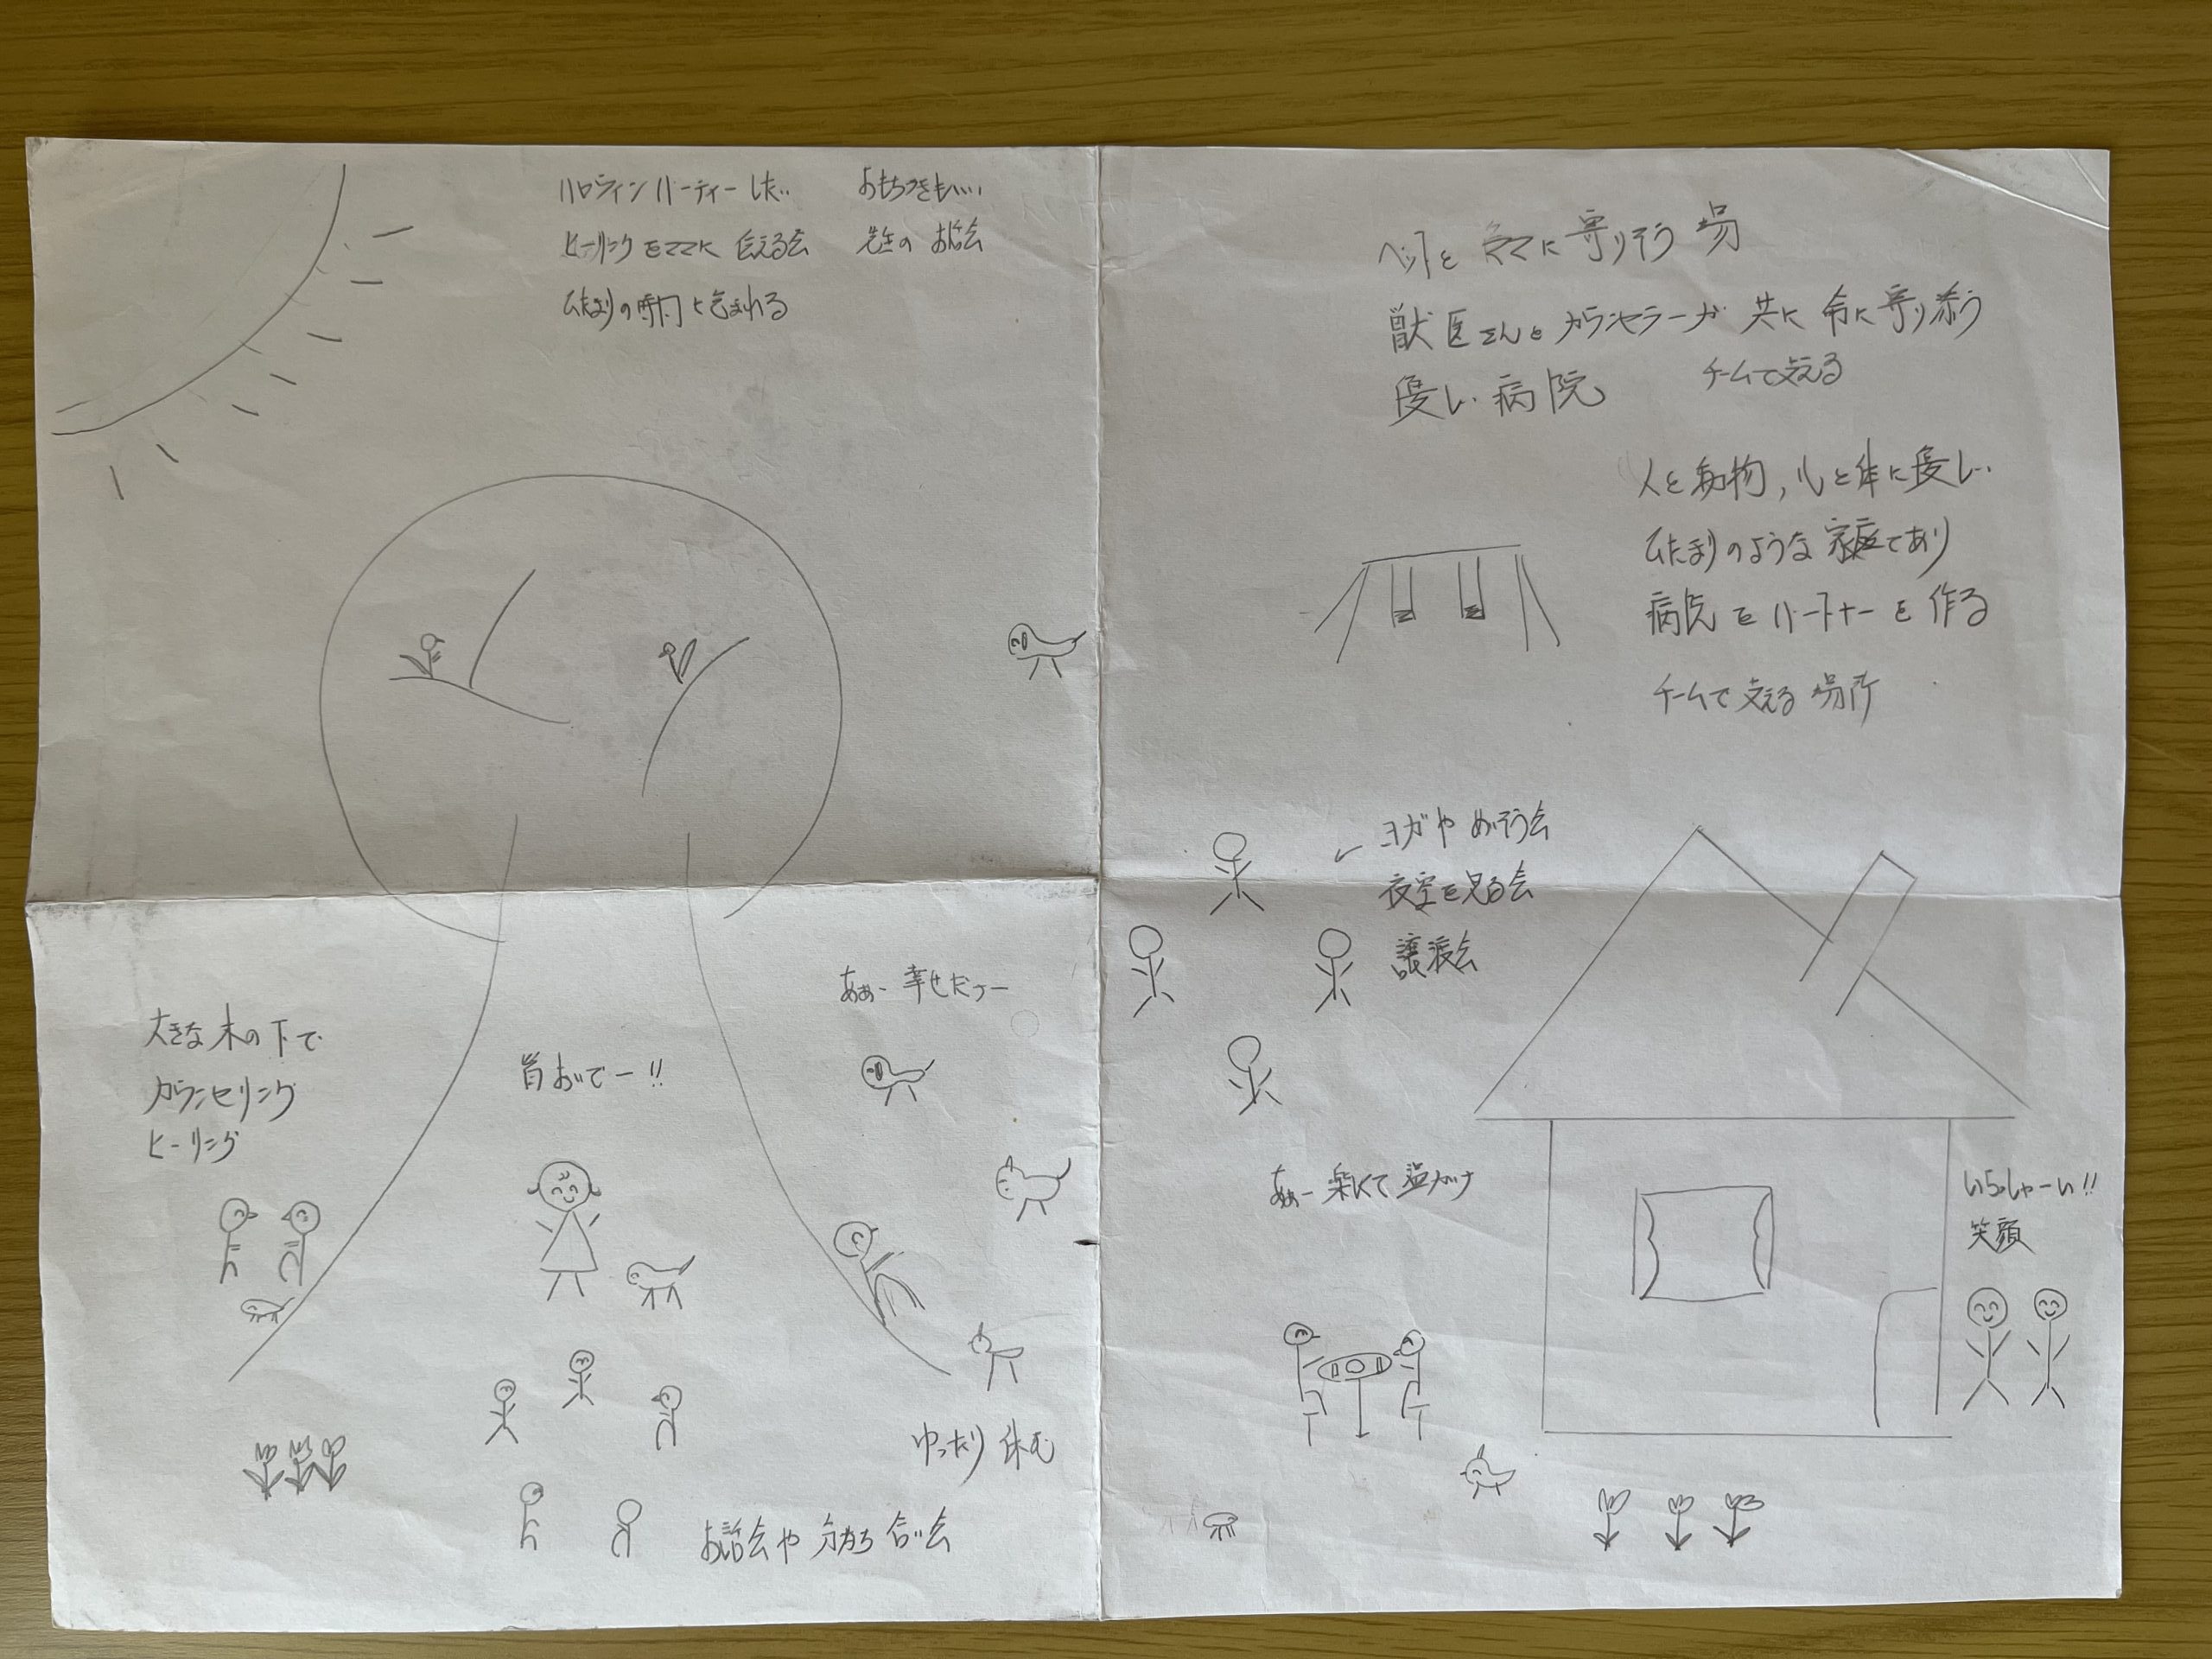 ハロウィンパーティーしたい
おもちつきもいい
ヒーリングをママに伝える会
先生のお話会
ひだまりの時間に包まれる
ペットとママに寄りそう場
獣医さんとカウンセラーが共に命に寄り添う
優しい病院
チームで支える
人と動物,心と体に優しい
ひだまりのような家庭であり
病院をパートナーを作る
チームで支える場所
ヨガやめいそう会
夜空を見る会
譲渡会
大きな木の下で
カウンセリング
ヒーリング
皆おいでー!!
あぁー幸せだなー
ゆったり休む
お話会や分かち合い会
あぁー楽しくて温かいナ
いらっしゃーい!!
笑顔